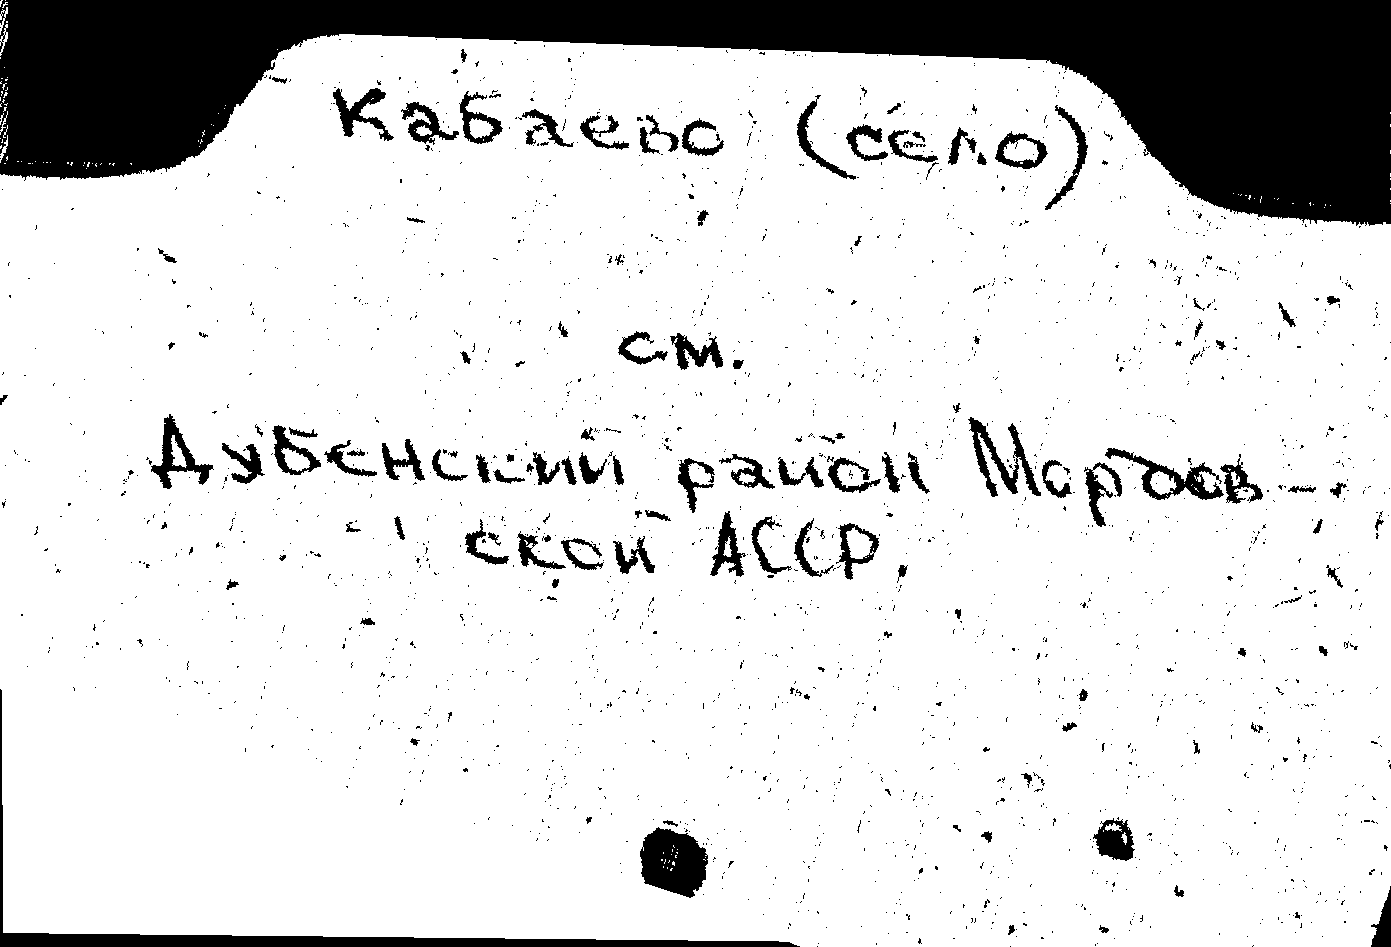 Кабаево (село)
см.
Дубенский район Мордов-
ской АССР.